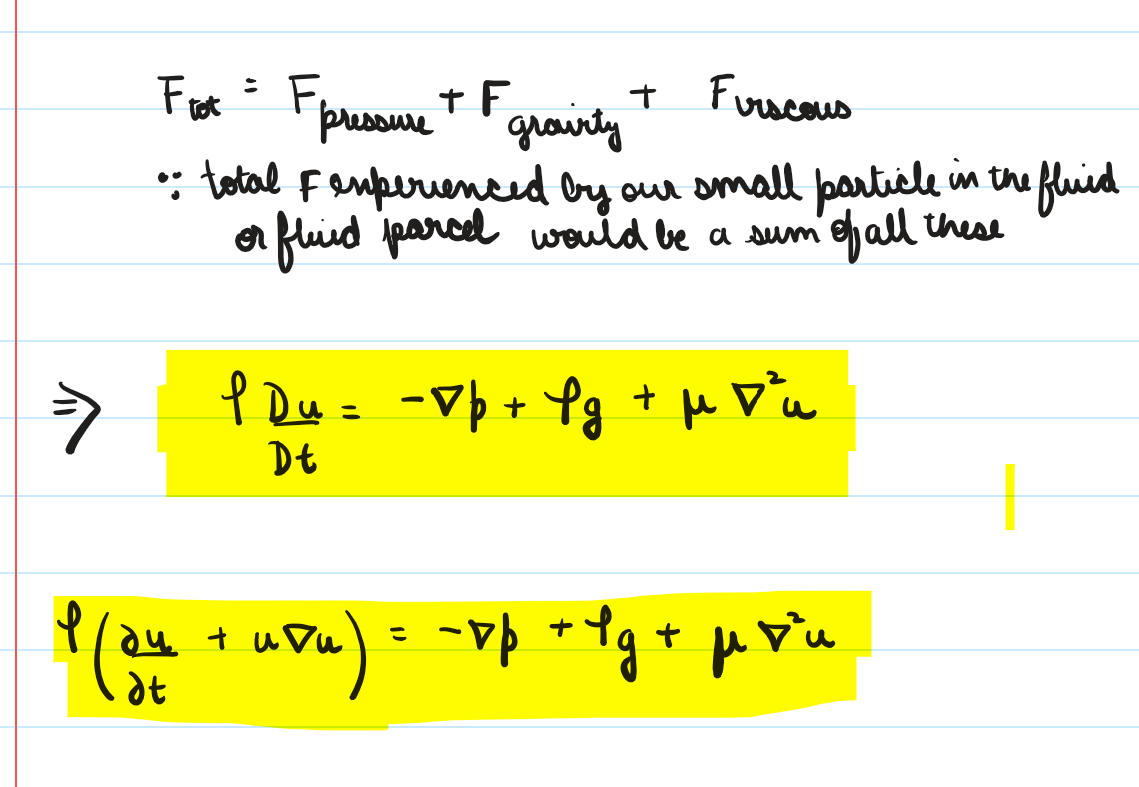 F_tot = F_pressure + F_gravity + F_viscous
∵ total F experienced by our small particle in the fluid
or fluid parcel would be a sum of all these
⇒ ρ Du/Dt = -∇p + ρg + μ ∇²u
ρ(∂u/∂t + u∇u) = -∇p + ρg + μ ∇²u